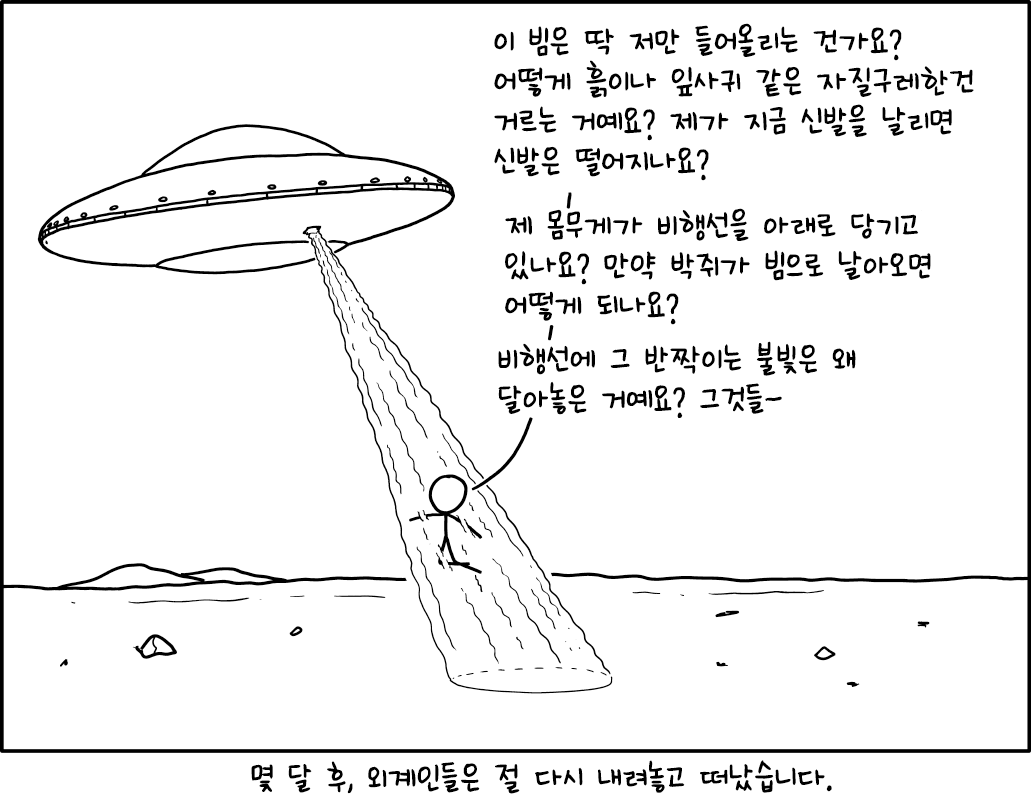 이 빔은 딱 저만 들어올리는 건가요?
어떻게 흙이나 잎사귀 같은 자질구레한건
거르는 거예요? 제가 지금 신발을 날리면
신발은 떨어지나요?
제 몸무게가 비행선을 아래로 당기고
있나요? 만약 박쥐가 빔으로 날아오면
어떻게 되나요?
비행선에 그 반짝이는 불빛은 왜
달아놓은 거예요? 그것들~
몇 달 후, 외계인들은 절 다시 내려놓고 떠났습니다.